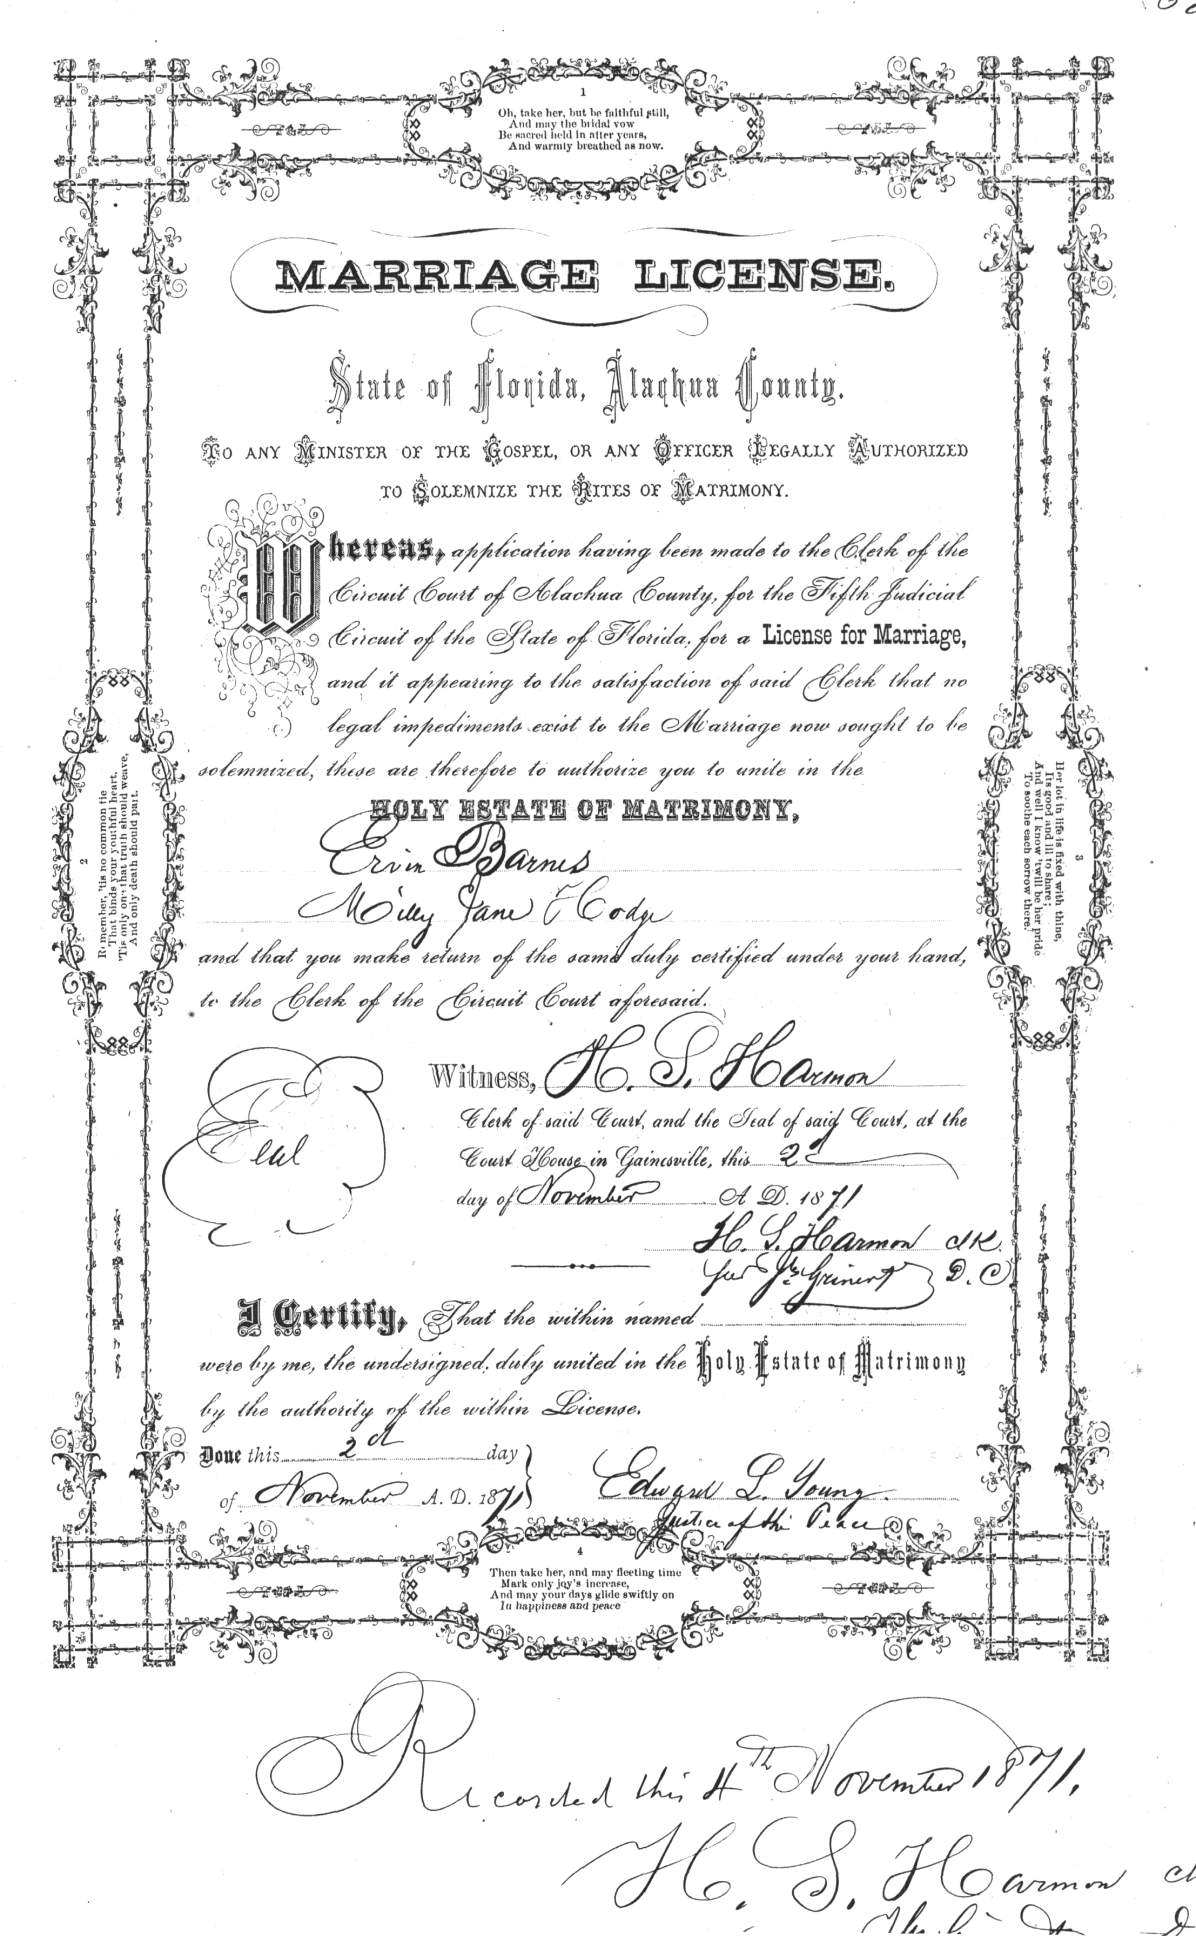 1
Oh, take her, but be faithful still,
And may the bridal vow
Be sacred held in after years,
And warmly breathed as now.
MARRIAGE LICENSE.
State of Florida, Alachua County.
TO ANY MINISTER OF THE GOSPEL, OR ANY OFFICER LEGALLY AUTHORIZED
TO SOLEMNIZE THE RITES OF MATRIMONY.
Whereas, application having been made to the Clerk of the
Circuit Court of Alachua County, for the Fifth Judicial
Circuit of the State of Florida, for a License for Marriage,
and it appearing to the satisfaction of said Clerk that no
legal impediments exist to the Marriage now sought to be
solemnized, these are therefore to authorize you to unite in the
HOLY ESTATE OF MATRIMONY,
Ervin Barnes
Milly Jane Hodge
and that you make return of the same duly certified under your hand,
to the Clerk of the Circuit Court aforesaid.
2
Remember, 'tis no common tie
That binds your youthful heart,
'Tis only one that truth should weave,
And only death should part.
3
Her lot in life is fixed with thine,
Its good and ill to share;
And well I know 'twill be her pride
To soothe each sorrow there.
Seal
Witness, H. S. Harmon
Clerk of said Court, and the Seal of said Court, at the
Court House in Gainesville, this 2d
day of November A. D. 1871
H. S. Harmon clk.
D. C
I Certify, That the within named
were by me, the undersigned, duly united in the Holy Estate of Matrimony
by the authority of the within License.
Done this 2d day
of November A. D. 1871
Edward L. Young
Justice of the Peace
4
Then take her, and may fleeting time
Mark only joy's increase,
And may your days glide swiftly on
In happiness and peace
Recorded this 4th November 1871.
H. S. Harmon